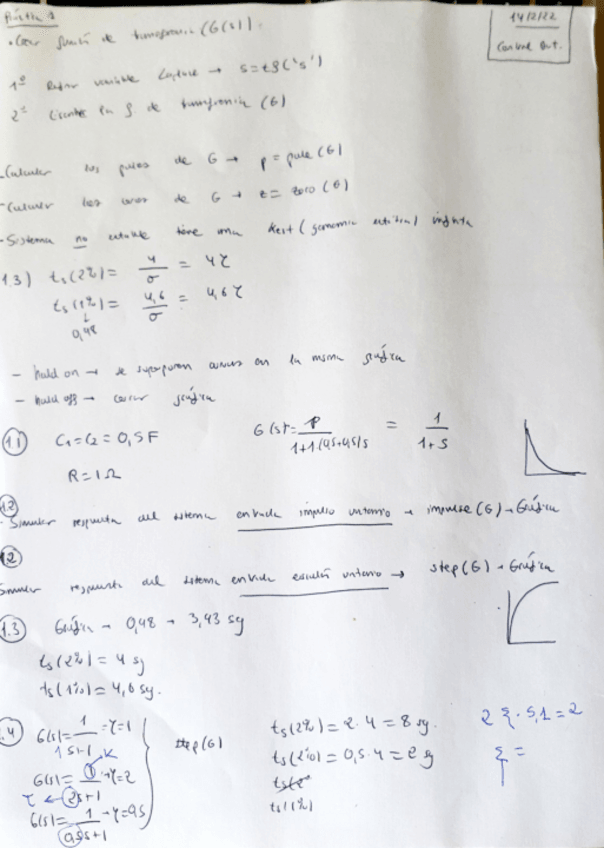 Práctica 1
14/2/22
Control Aut.
• Crear función de transferencia (G(s)).
1º variable Laplace → s = tf('s')
2º f. de transferencia (G)
- Calcular los polos de G → p = pole(G)
- Calcular los ceros de G → z = zero(G)
- Sistema no estable tiene una Kest (ganancia estática) infinita
1.3) ts(2%) = 4/σ = 4τ
ts(1%) = 4,6/σ = 4,6τ
↓
0,98
- hold on → se superponen curvas en la misma gráfica
- hold off → cerrar gráfica
1.1 C₁=C₂=0,5F G(s)= R/1+1.(0,5+0,5)s = 1/1+s
R=1Ω
1.2
- Simular respuesta del sistema entrada impulso unitario → impulse(G) → Gráfica
1.2
Simular respuesta del sistema entrada escalón unitario → step(G) → Gráfica
1.3 Gráfica → 0,98 → 3,93 sg
ts(2%) = 4 sg
ts(1%) = 4,6 sg.
1.4 G(s)= 1/1s+1 → τ=1
G(s)= 1/2s+1 → τ=2
K
τ ←
G(s)= 1/0,5s+1 → τ=0,5
step(G)
ts(2%) = 2·4 = 8 sg.
ts(2%) = 0,5·4 = 2 sg
ts(2
ts(1%)
2ξ·5,1=2
ξ =